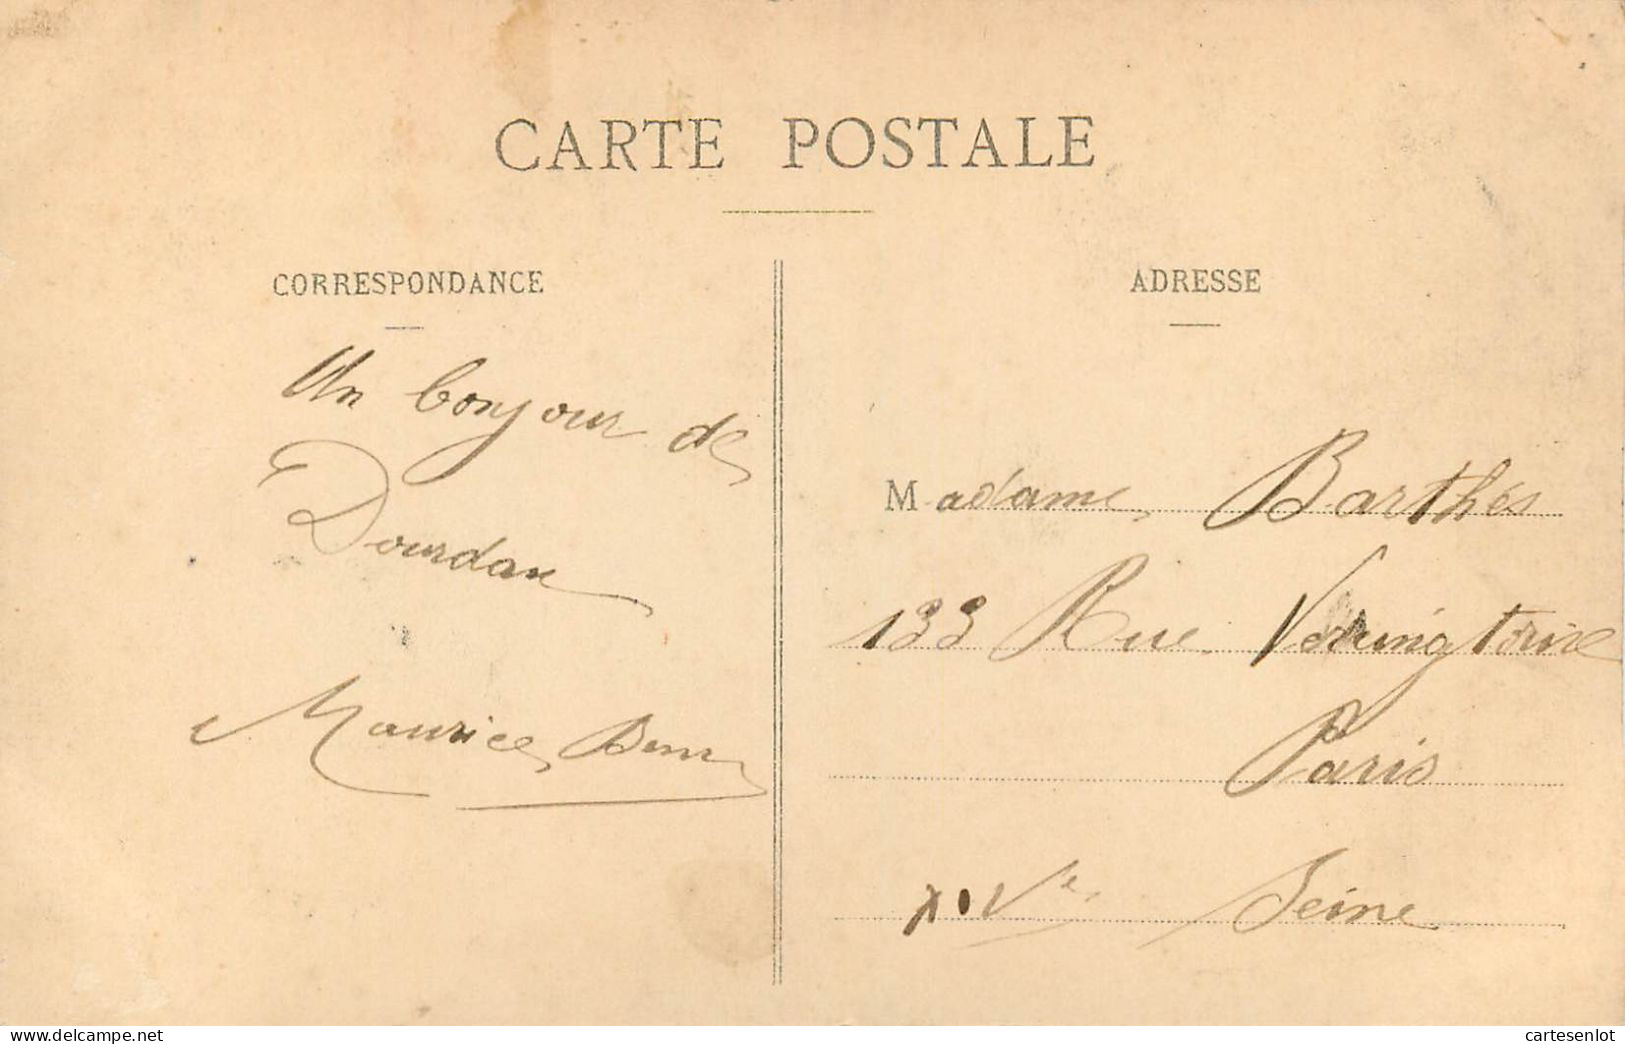 CARTE POSTALE
CORRESPONDANCE
Un bonjour de
Dourdan
Maurice
ADRESSE
Madame Barthés
133 Rue Vercingtorixe
Paris
XIVe Seine
www.delcampe.net
cartesenlot